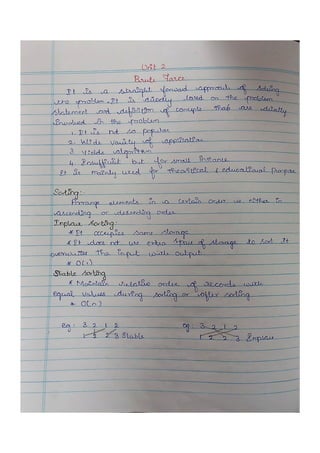 Unit 2
Brute Force
It is a straight forward approach of solving
the problem. It is directly based on the problem
statement and definition of concepts that are directly
involved in the problem
1. It is not so popular
2. Wide variety of application
3. Yields algorithm
4. Insufficient but for small instance
It is mainly used for theoritical & educational purpose
Sorting:
Arrange elements in a certain order ie either in
ascending or descending order
Inplace Sorting:
* It occupies same storage
* It does not use extra of storage to sort it
overwrites the input with output.
* O(1)
Stable sorting
* Maintain relative order of records with
equal values during sorting or after sorting
* O(n)
eg: 3 2 1 2
1 2 2 3 Stable
eg: 3 2 1 2
1 2 2 3 Inplace